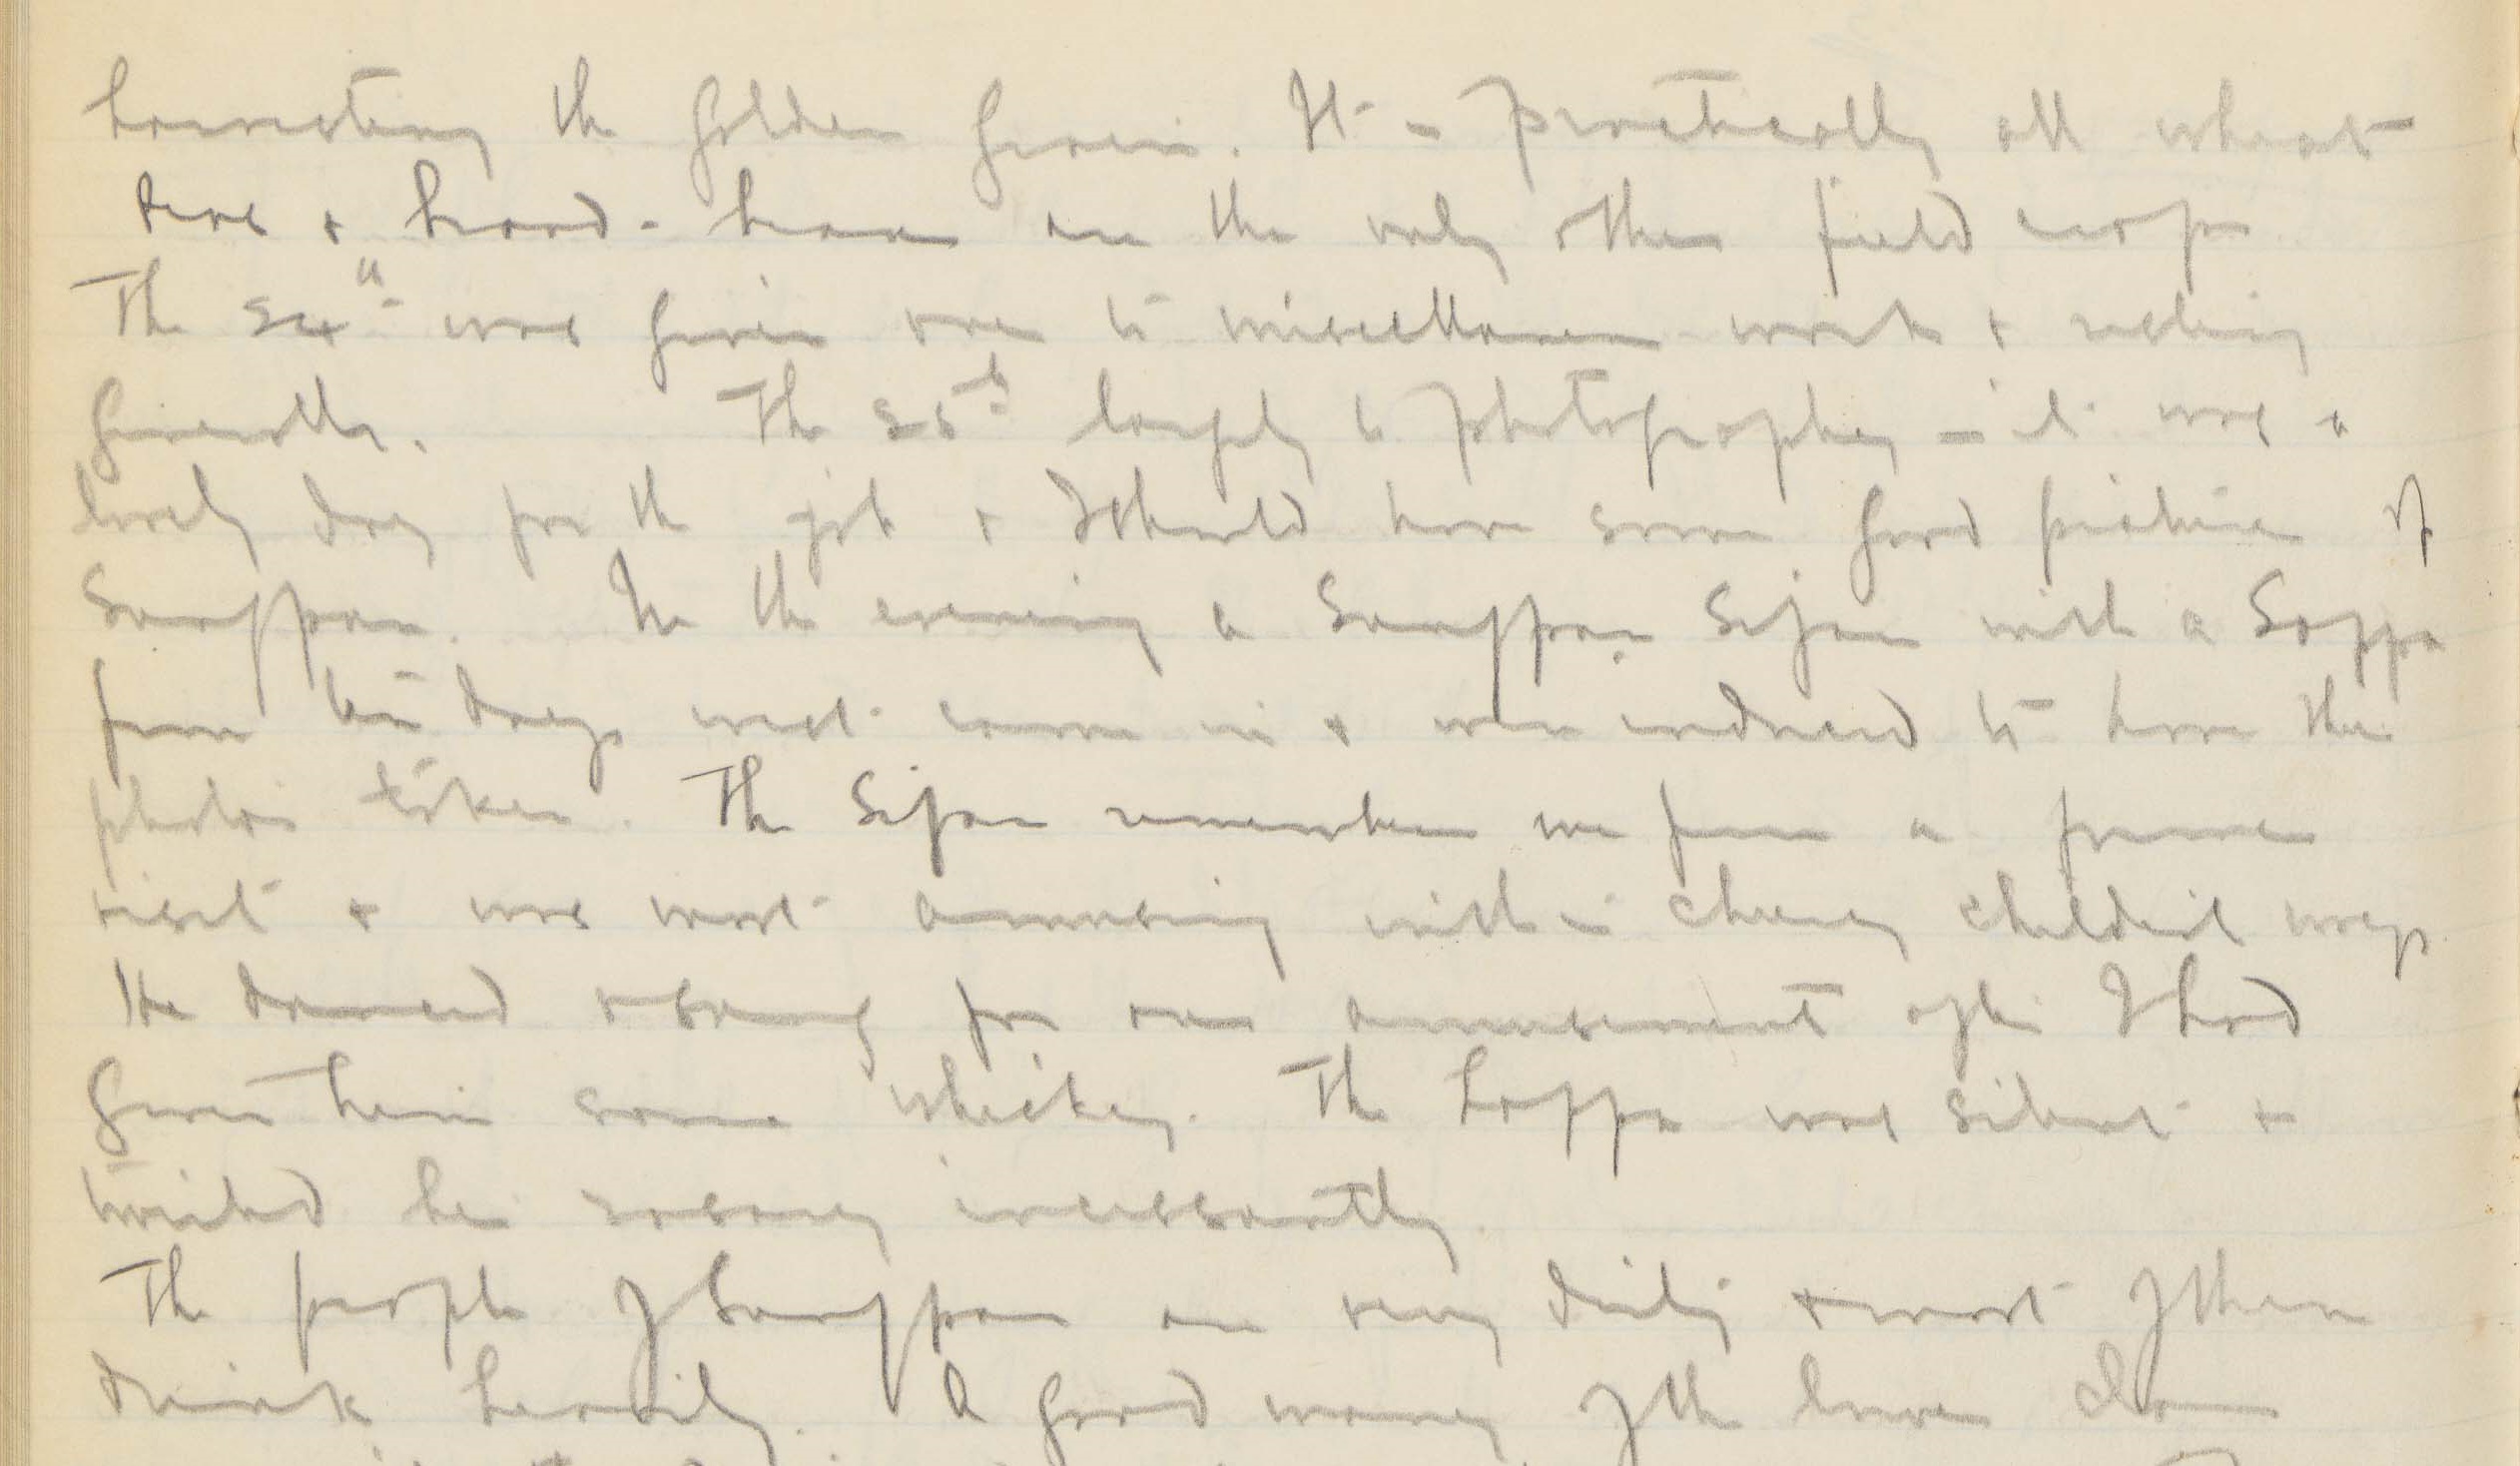 harvesting the golden grain. It is practically all wheat
here & broad-beans are the only other field crops
The 24th was given over to miscellaneous work & resting
generally. The 25th largely to photography – it was a
lovely day for the job & I should have some good pictures of
Sungpan. In the evening a Sungpan Sifan with a Lappa
from ten days west came in & were induced to have their
photos taken. The Sifan remembers me from a former
visit & was most amusing with is cheery childish ways
He danced & sang for our amusement after I had
given him some whiskey. The Lappa was silent &
twirled his rosary incessantly.
The people of Sungpan are very dirty & most of them
drink heavily. A good many of the lower class